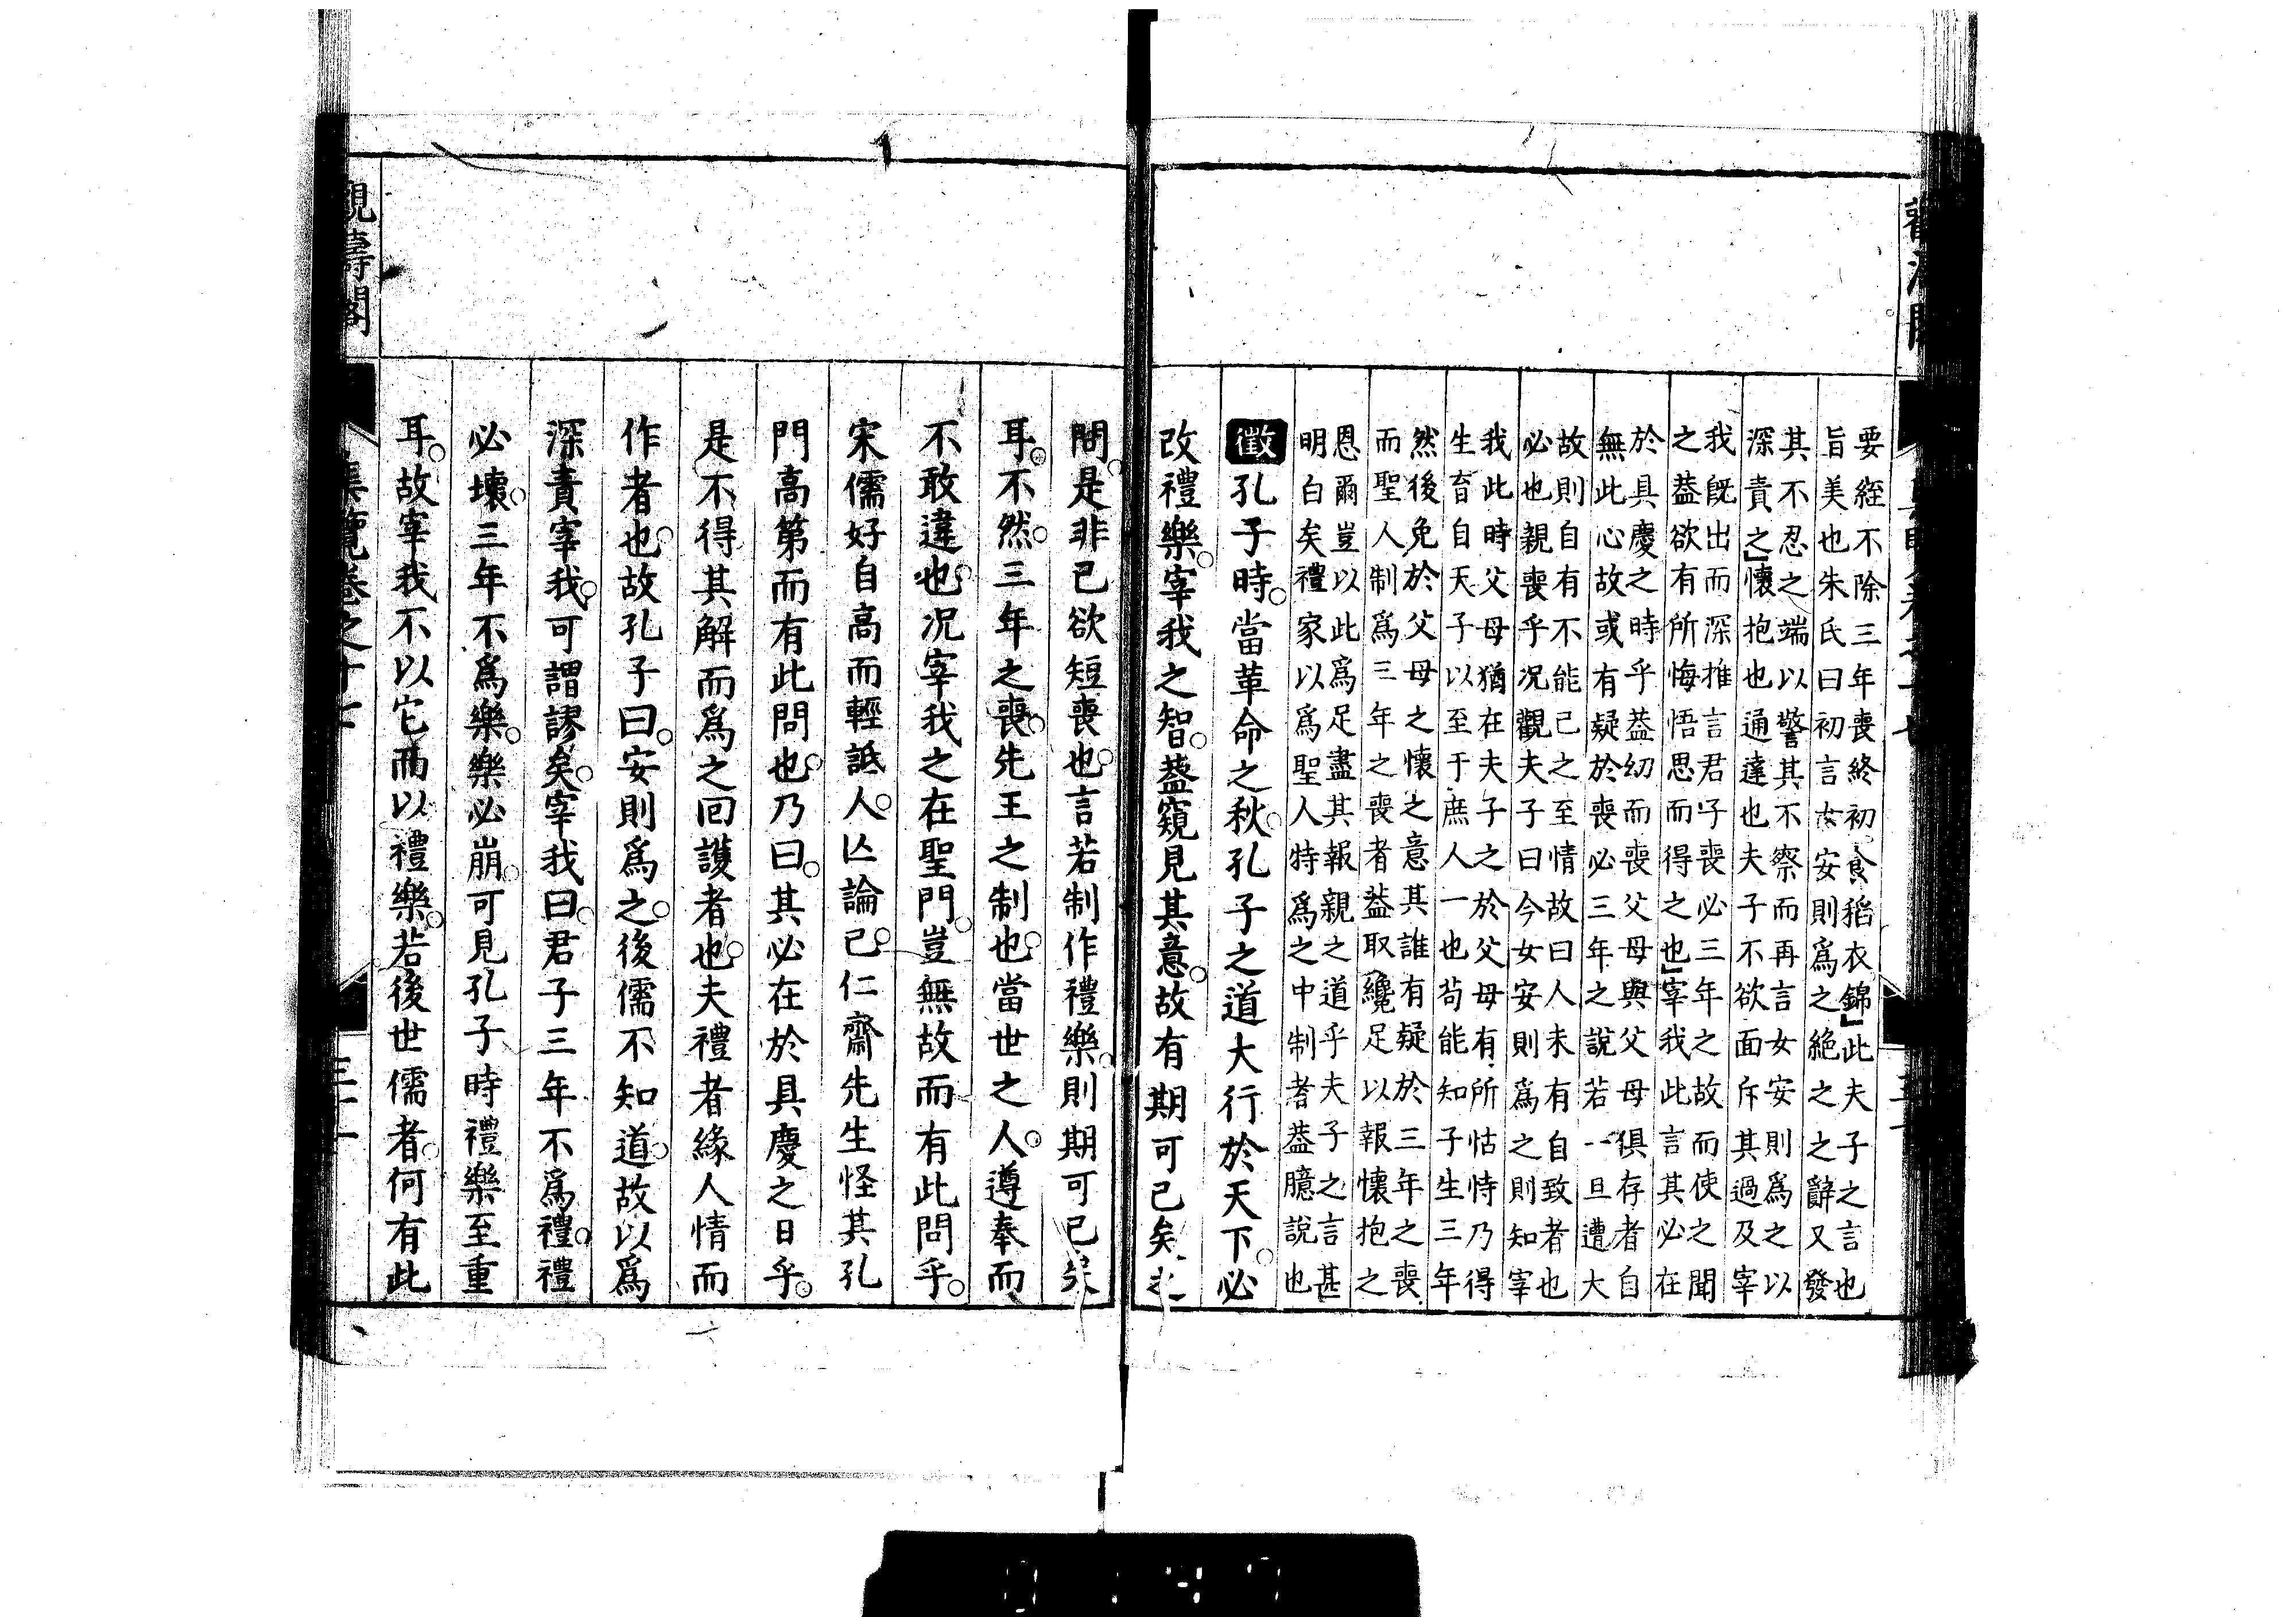 要絰不除三年喪終初食稻衣錦」此夫子之言也
旨美也朱氏曰初言女安則爲之絕之之辭又發
其不忍之端以警其不察而再言女安則爲之以
深責之」懷抱也通達也夫子不欲面斥其過及宰
我既出而深推言君子喪必三年之故而使之聞
之葢欲有所悔悟思而得之也」宰我此言其必在
於具慶之時乎葢幼而喪父母與父母俱存者自
無此心故或有疑於喪必三年之說若一旦遭大
故則自有不能已之至情故曰人未有自致者也
必也親喪乎况觀夫子曰今女安則爲之則知宰
我此時父母猶在夫子之於父母有所怙恃乃得
生育自天子以至于庶人一也苟能知子生三年
然後免於父母之懷之意其誰有疑於三年之喪
而聖人制爲三年之喪者葢取纔足以報懷抱之
恩爾豈以此爲足盡其報親之道乎夫子之言甚
明白矣禮家以爲聖人特爲之中制者葢臆說也
徵孔子時當革命之秋孔子之道大行於天下必
改禮樂宰我之智葢窺見其意故有期可已矣之
問是非已欲短喪也言若制作禮樂則期可已矣
耳不然三年之喪先王之制也當世之人遵奉而
不敢違也况宰我之在聖門豈無故而有此問乎
宋儒好自高而輕詆人亾論已仁齋先生怪其孔
門高第而有此問也乃曰其必在於具慶之日乎
是不得其解而爲之回護者也夫禮者緣人情而
作者也故孔子曰安則爲之後儒不知道故以爲
深責宰我可謂謬矣宰我曰君子三年不爲禮禮
必壞三年不爲樂樂必崩可見孔子時禮樂至重
耳故宰我不以它而以禮樂若後世儒者何有此
觀濤閣
集覽卷之十七